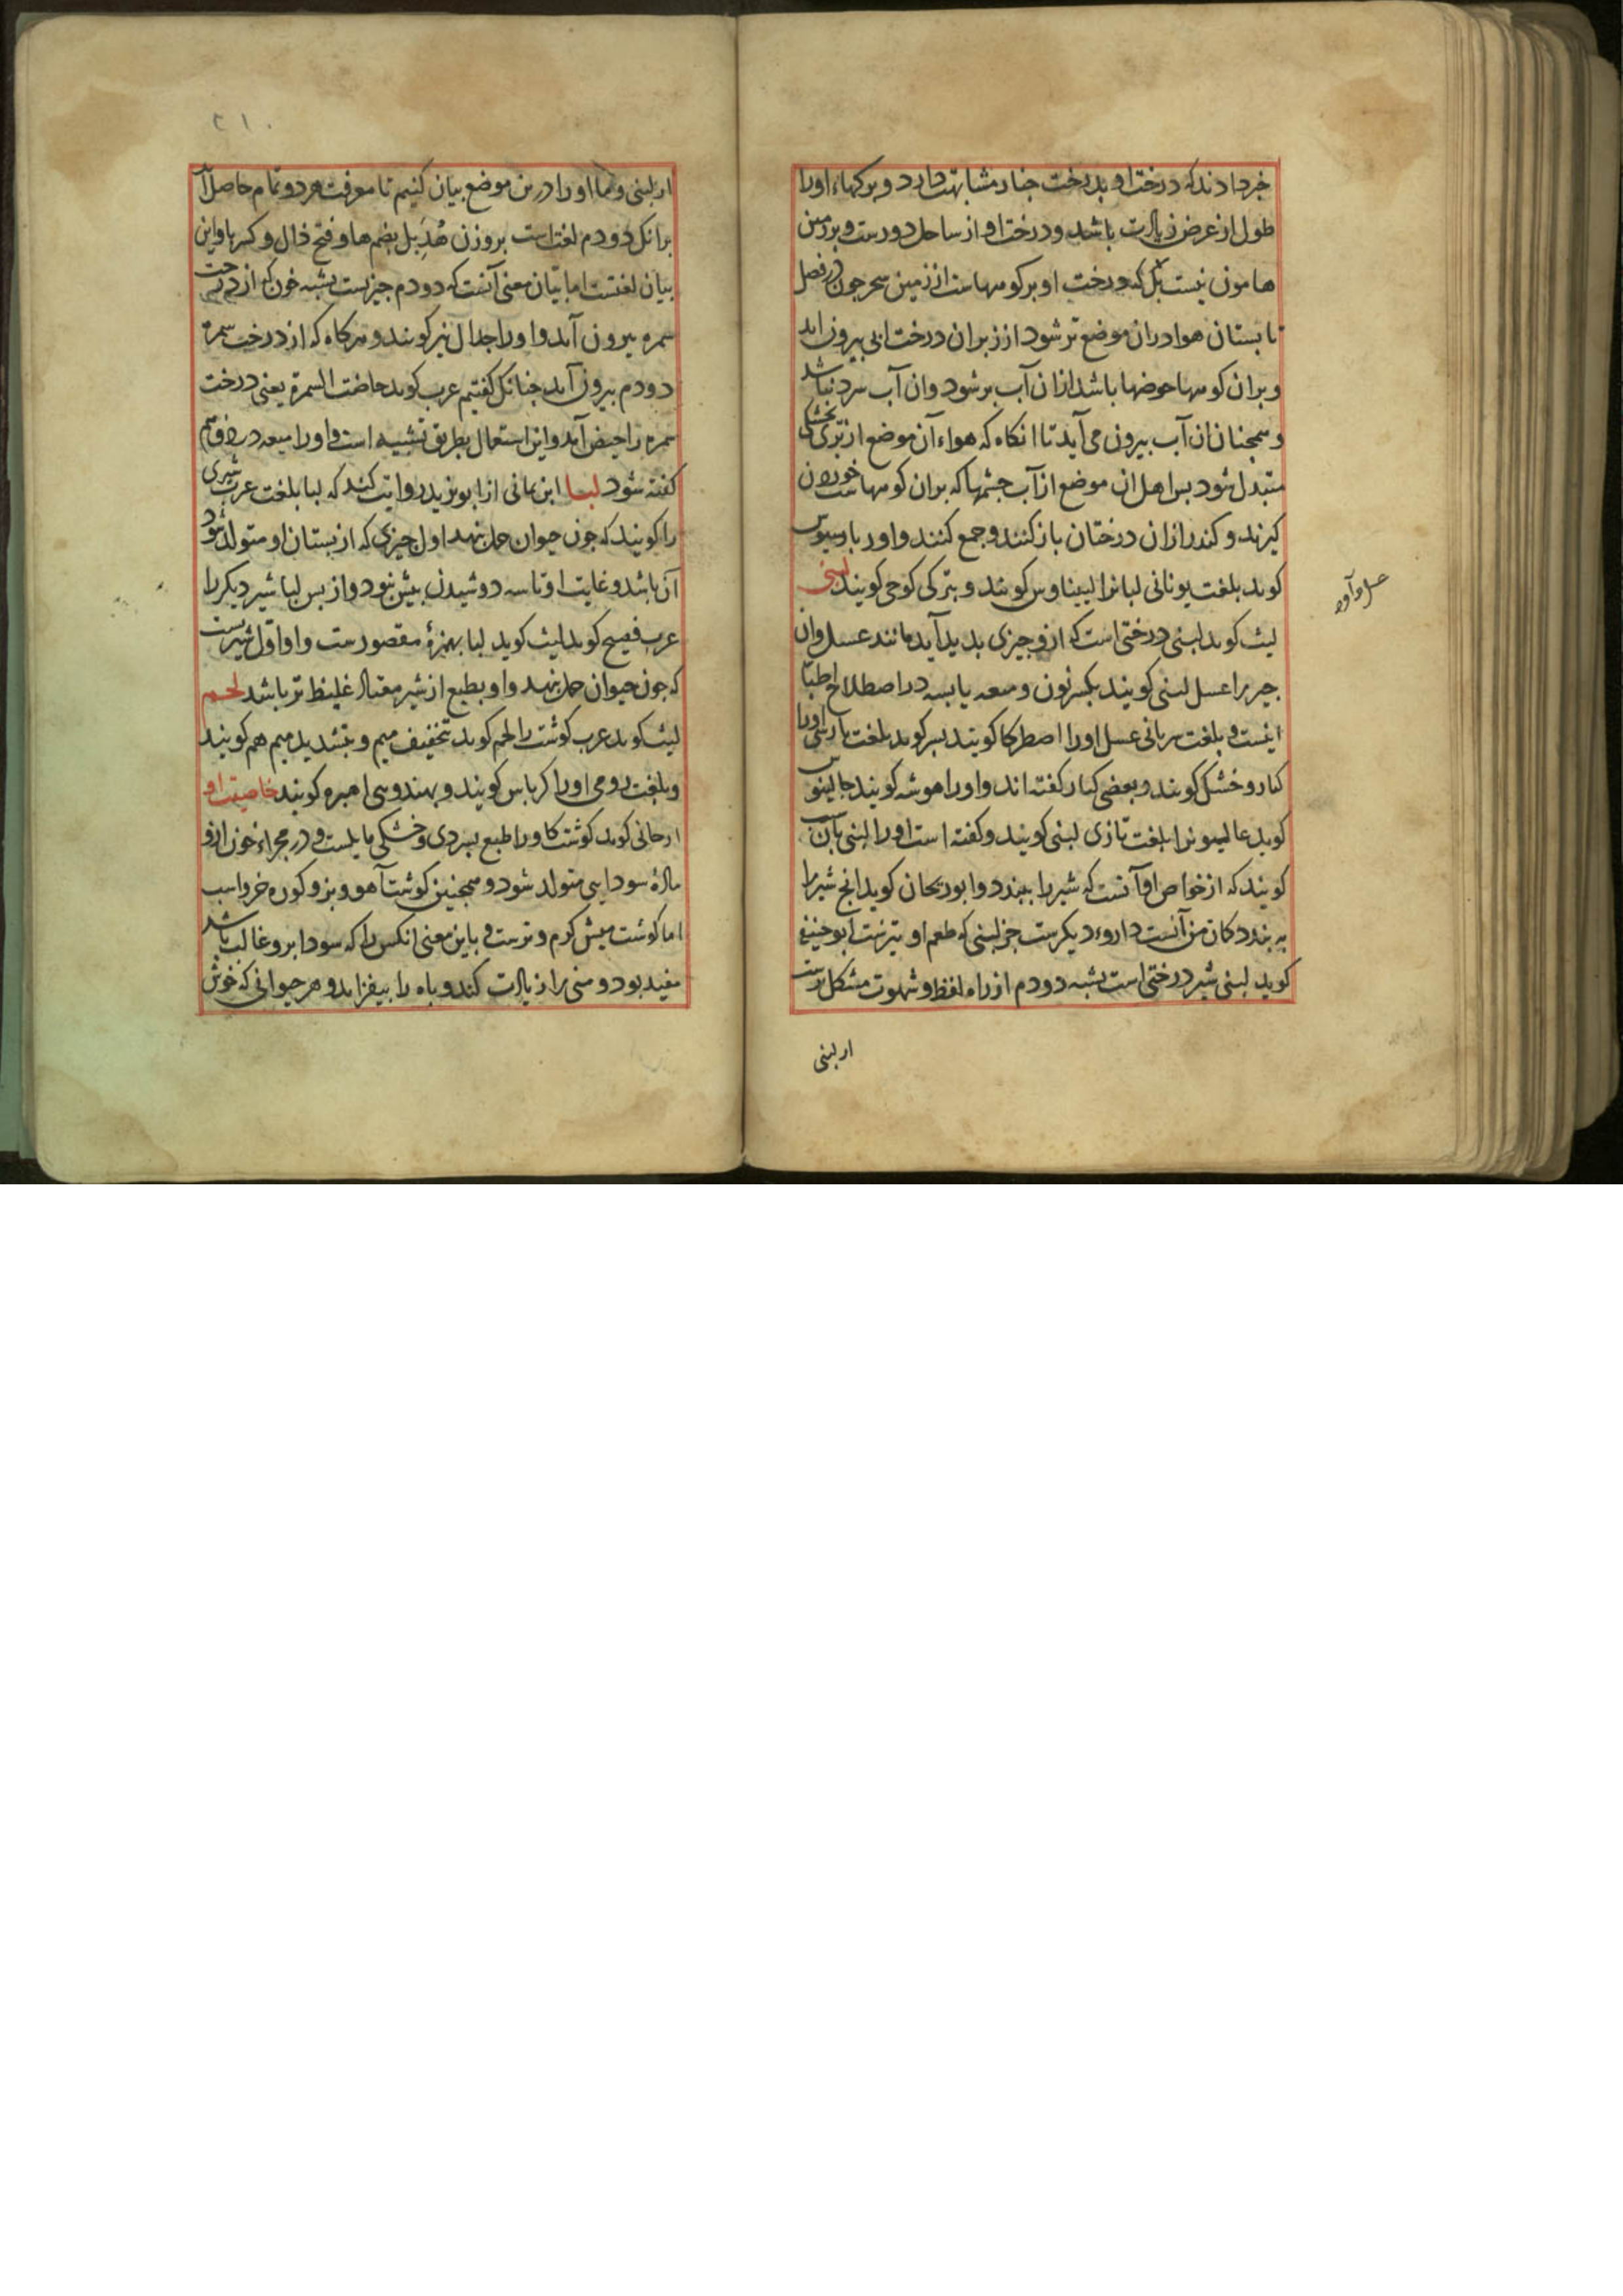 خبر دادند که درخت او بدرخت چنار مشابهت دارد و برکهاء اورا
طول از عرض زیادت باشد و درخت او از ساحل دورست و بر زمین
هامون نیست بل که درخت او بر کوههاست از زمین سحر جون در فصل
تابستان هوا دران موضع تر شود از زبران درخت ابی بیرون اید
و بران کوهها حوضها باشد ازان آب بر شود وان آب سرد نباشد
و همجنان ان آب بیرون می آید تا انکاه که هواء آن موضع از تری بخشکی
متبدل شود بس اهل ان موضع از آب جشمها که بران کوههاست خوردن
کیرند و کندر ازان درختان باز کنند و جمع کنند و اوریباسیوس
کوید بلغت یونانی لبانرا لیبناوس کویند و بترکی کوجی کویند لبنی
لیث کوید لبنی درختی است که ازو جیزی بدید آید مانند عسل وان
جیز را عسل لبنی کویند بکسر نون و میعه یابسه در اصطلاح اطبا
اینست و بلغت سریانی عسل اورا اصطرکا کویند بسر کوید بلغت بارسی اورا
کنار و خشکل کویند و بعضی کنار کفته اند و اورا هوشه کویند جالینوس
کوید عالیونرا بلغت تازی لبنی کویند و کفته است اورا لبنی بآن
کویند که از خواص او آنست که شیر را ببندد و ابوریحان کوید انج شیر را
به بندد کان من آنست داروء دیکرست جز لبنی که طعم او تیزست ابو حنیفه
کوید لبنی شیر درختی است بشبه دودم از راه لفظ و شهوت مشکل ترست
ار لبنی
ار لبنی و ما اورا درین موضع بیان کنیم تا معرفت هر دو تمام حاصل آید
برانکل دودم لغت است بر وزن هُذَبِل بضم ها و فتح ذال و کسر با و این
بیان لغتست اما بیان معنی آنست که دودم جیزیست بشبه خون که از درخت
سمره بیرون آید و اورا جدال نیز کویند و هرکاه که از درخت سمرة
دودم بیرون آید جنانکل کفتیم عرب کوید حاضت السمرة یعنی درخت
سمره را حیض آمد و این استعمال بطریق تشبیه است و اورا میعه در دو قسم
کفته شود لبا ابن مانی از ابو یزید روایت کند که لبا بلغت عرب شیری
را کویند که جون حیوان حمل بنهد اول جیزی که از بستان او متولد شود
آن باشد و غایت او تا سه دوشیدن بیش نبود و از بس لبا شیر دیکر را
عرب فصیح کوید لیث کوید لبا بهمزهٔ مقصورست و او اول شیریست
که جون حیوان حمل بنهد و او بطبع از شیر معتاد غلیظ تر باشد لحم
لیث کوید عرب کوشت را لحم کوید بتخفیف میم و بتشدید میم هم کویند
و بلغت رومی اورا کریاس کویند و بهندوی اهبره کویند خاصیت او
ارجانی کوید کوشت کاو را طبع بسردی و خشکی مایلست و در مجراء خون ازو
مادهٔ سودایی متولد شود و همجنین کوشت آهو و بز و کوره خر و اسب
اما کوشت میش کرم و ترست و باین معنی انکس را که سودا برو غالب باشد
مفید بود و منی را زیادت کند و باه را بیفزاید و هر حیوانی که خوش